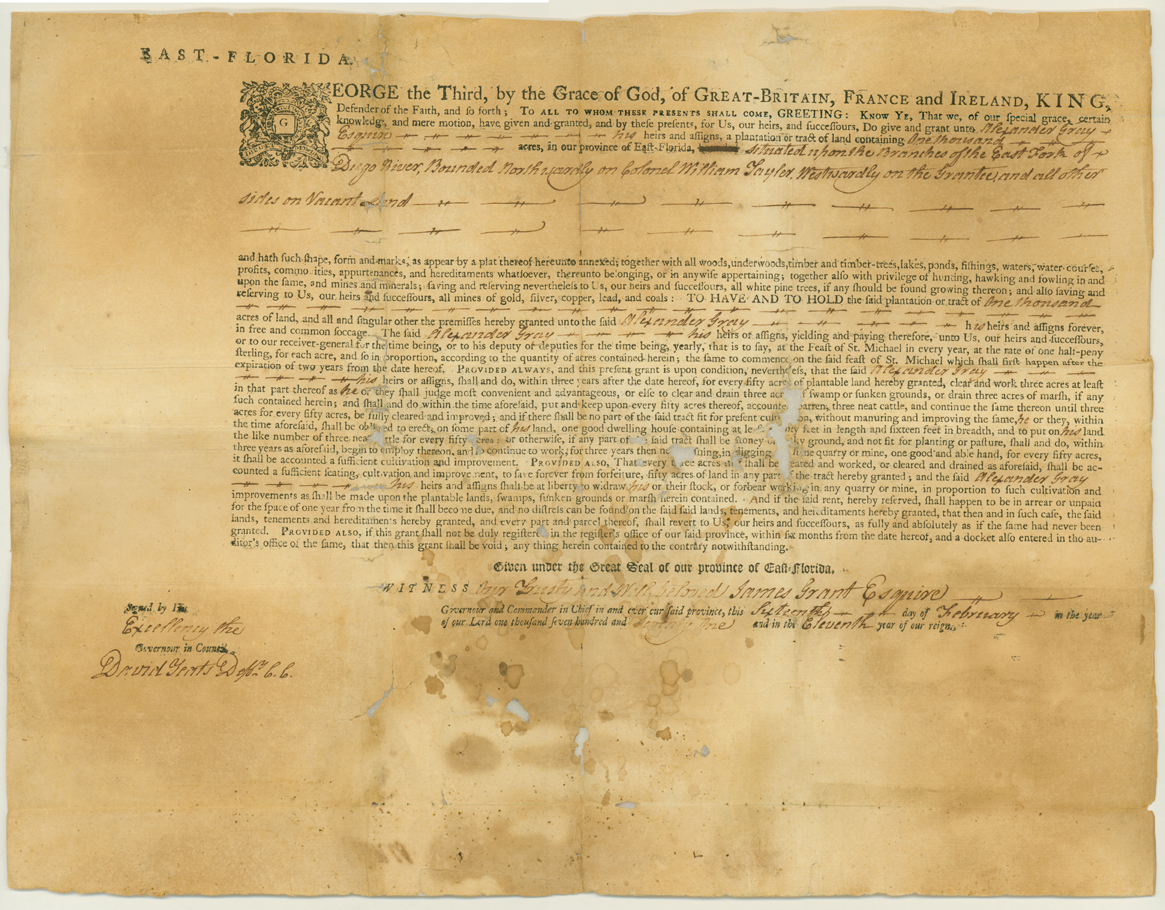 EAST-FLORIDA.
GEORGE the Third, by the Grace of God, of GREAT-BRITAIN, FRANCE and IRELAND, KING,
Defender of the Faith, and so forth; TO ALL TO WHOM THESE PRESENTS SHALL COME, GREETING: KNOW YE, That we, of our special grace, certain
knowledge, and mere motion, have given and granted, and by these presents, for Us, our heirs, and successours, Do give and grant unto Alexander Gray
Esquire his heirs and assigns, a plantation or tract of land containing One thousand
acres, in our province of East-Florida, situated upon the Branches of the East Fork of
Dego River, Bounded Northwardly on Colonel William Tayler, Westwardly on the Grantee, and all other
sides on Vacant Land
and hath such shape, form and marks, as appear by a plat thereof hereunto annexed; together with all woods, underwoods, timber and timber-trees, lakes, ponds, fishings, waters, water-courses,
profits, commodities, appurtenances, and hereditaments whatsoever, thereunto belonging, or in anywise appertaining; together also with privilege of hunting, hawking and fowling in and
upon the same, and mines and minerals; saving and reserving nevertheless to Us, our heirs and successours, all white pine trees, if any should be found growing thereon; and also saving and
reserving to Us, our heirs and successours, all mines of gold, silver, copper, lead, and coals: TO HAVE AND TO HOLD the said plantation or tract of One thousand
acres of land, and all and singular other the premisses hereby granted unto the said Alexander Gray his heirs and assigns forever,
in free and common soccage. The said Alexander Gray his heirs or assigns, yielding and paying therefore, unto Us, our heirs and successours,
or to our receiver-general for the time being, or to his deputy or deputies for the time being, yearly, that is to say, at the Feast of St. Michael in every year, at the rate of one half-peny
sterling, for each acre, and so in proportion, according to the quantity of acres contained herein; the same to commence on the said feast of St. Michael which shall first happen after the
expiration of two years from the date hereof. PROVIDED ALWAYS, and this present grant is upon condition, nevertheless, that the said Alexander Gray
his heirs or assigns, shall and do, within three years after the date hereof, for every fifty acres of plantable land hereby granted, clear and work three acres at least
in that part thereof as he or they shall judge most convenient and advantageous, or else to clear and drain three acres of swamp or sunken grounds, or drain three acres of marsh, if any
such contained herein; and shall and do within the time aforesaid, put and keep upon every fifty acres thereof, accounted barren, three neat cattle, and continue the same thereon until three
acres for every fifty acres, be fully cleared and improved; and if there shall be no part of the said tract fit for present cultivation, without manuring and improving the same, he or they, within
the time aforesaid, shall be obliged to erect, on some part of his land, one good dwelling house containing at least feet in length and sixteen feet in breadth, and to put on his land
the like number of three neat cattle for every fifty acres: or otherwise, if any part of said tract shall be stoney or rocky ground, and not fit for planting or pasture, shall and do, within
three years as aforesaid, begin to employ thereon, and so continue to work, for three years then next ensuing, in digging quarry or mine, one good and able hand, for every fifty acres,
it shall be accounted a sufficient cultivation and improvement. PROVIDED ALSO, That every three acres that shall be cleared and worked, or cleared and drained as aforesaid, shall be ac-
counted a sufficient seating, cultivation and improvement, to save forever from forfeiture, fifty acres of land in any part of the tract hereby granted; and the said Alexander Gray
his heirs and assigns shall be at liberty to withdraw his or their stock, or forbear working in any quarry or mine, in proportion to such cultivation and
improvements as shall be made upon the plantable lands, swamps, sunken grounds or marsh herein contained. And if the said rent, hereby reserved, shall happen to be in arrear or unpaid
for the space of one year from the time it shall become due, and no distress can be found on the said lands, tenements, and hereditaments hereby granted, that then and in such case, the said
lands, tenements and hereditaments hereby granted, and every part and parcel thereof, shall revert to Us, our heirs and successours, as fully and absolutely as if the same had never been
granted. PROVIDED ALSO, if this grant shall not be duly registered in the register's office of our said province, within six months from the date hereof, and a docket also entered in the au-
ditor's office of the same, that then this grant shall be void, any thing herein contained to the contrary notwithstanding.
Given under the Great Seal of our province of East-Florida.
WITNESS Our Trusty and Well beloved James Grant Esquire
Governour and Commander in Chief in and over our said province, this Sixteenth day of February in the year
of our Lord one thousand seven hundred and Seventy One and in the Eleventh year of our reign.
Signed by His
Excellency the
Governour in Council.
David Yeats Depy. C.C.